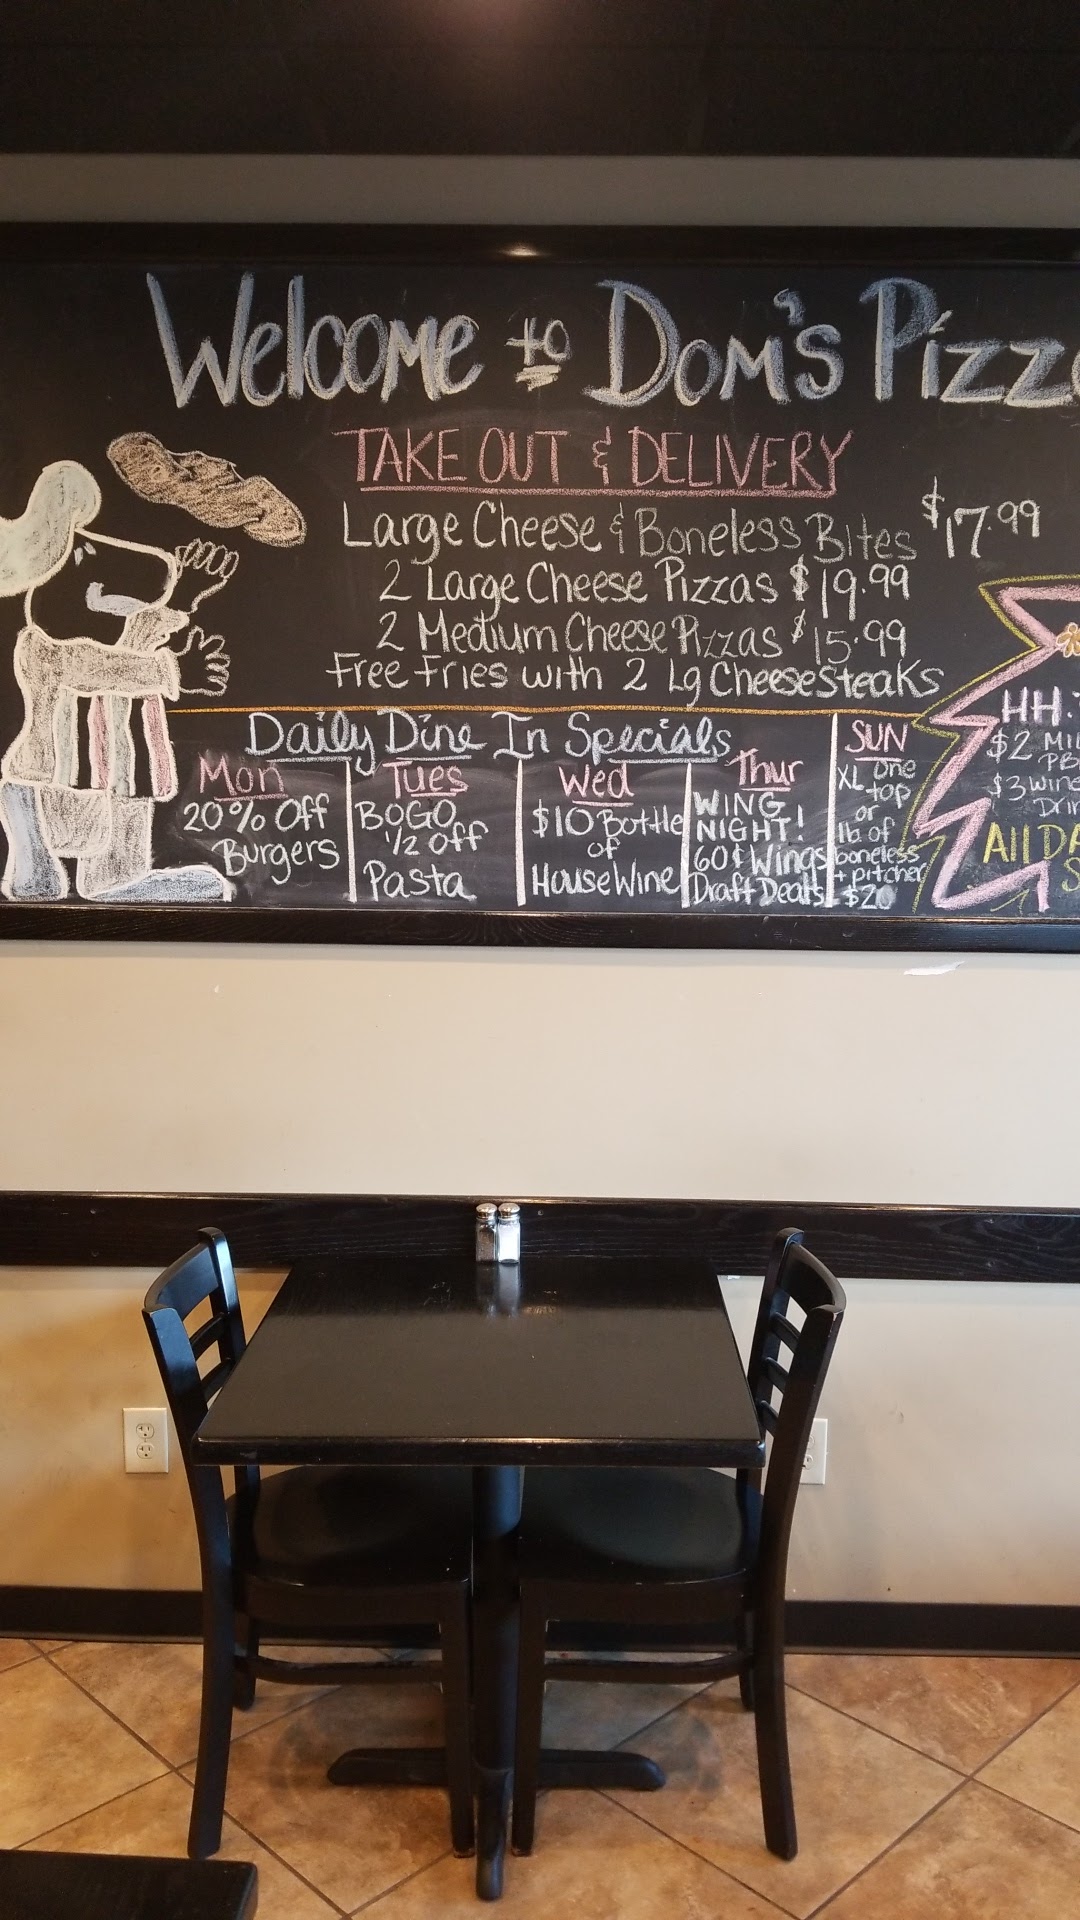 Welcome to Dom's Pizz
TAKE OUT & DELIVERY
Large Cheese & Boneless Bites $17.99
2 Large Cheese Pizzas $19.99
2 Medium Cheese Pizzas $15.99
Free Fries with 2 Lg Cheesesteaks
Daily Dine In Specials
Mon
20% Off
Burgers
Tues
BOGO
1/2 off
Pasta
Wed
$10 Bottle
of
House Wine
Thur
WING
NIGHT!
60¢ Wings
Draft Deals
SUN
XL one
top
or
lb of
boneless
+ pitcher
$20
HH.
$2 MIL
PB
$3 wine
Drin
All DA
S